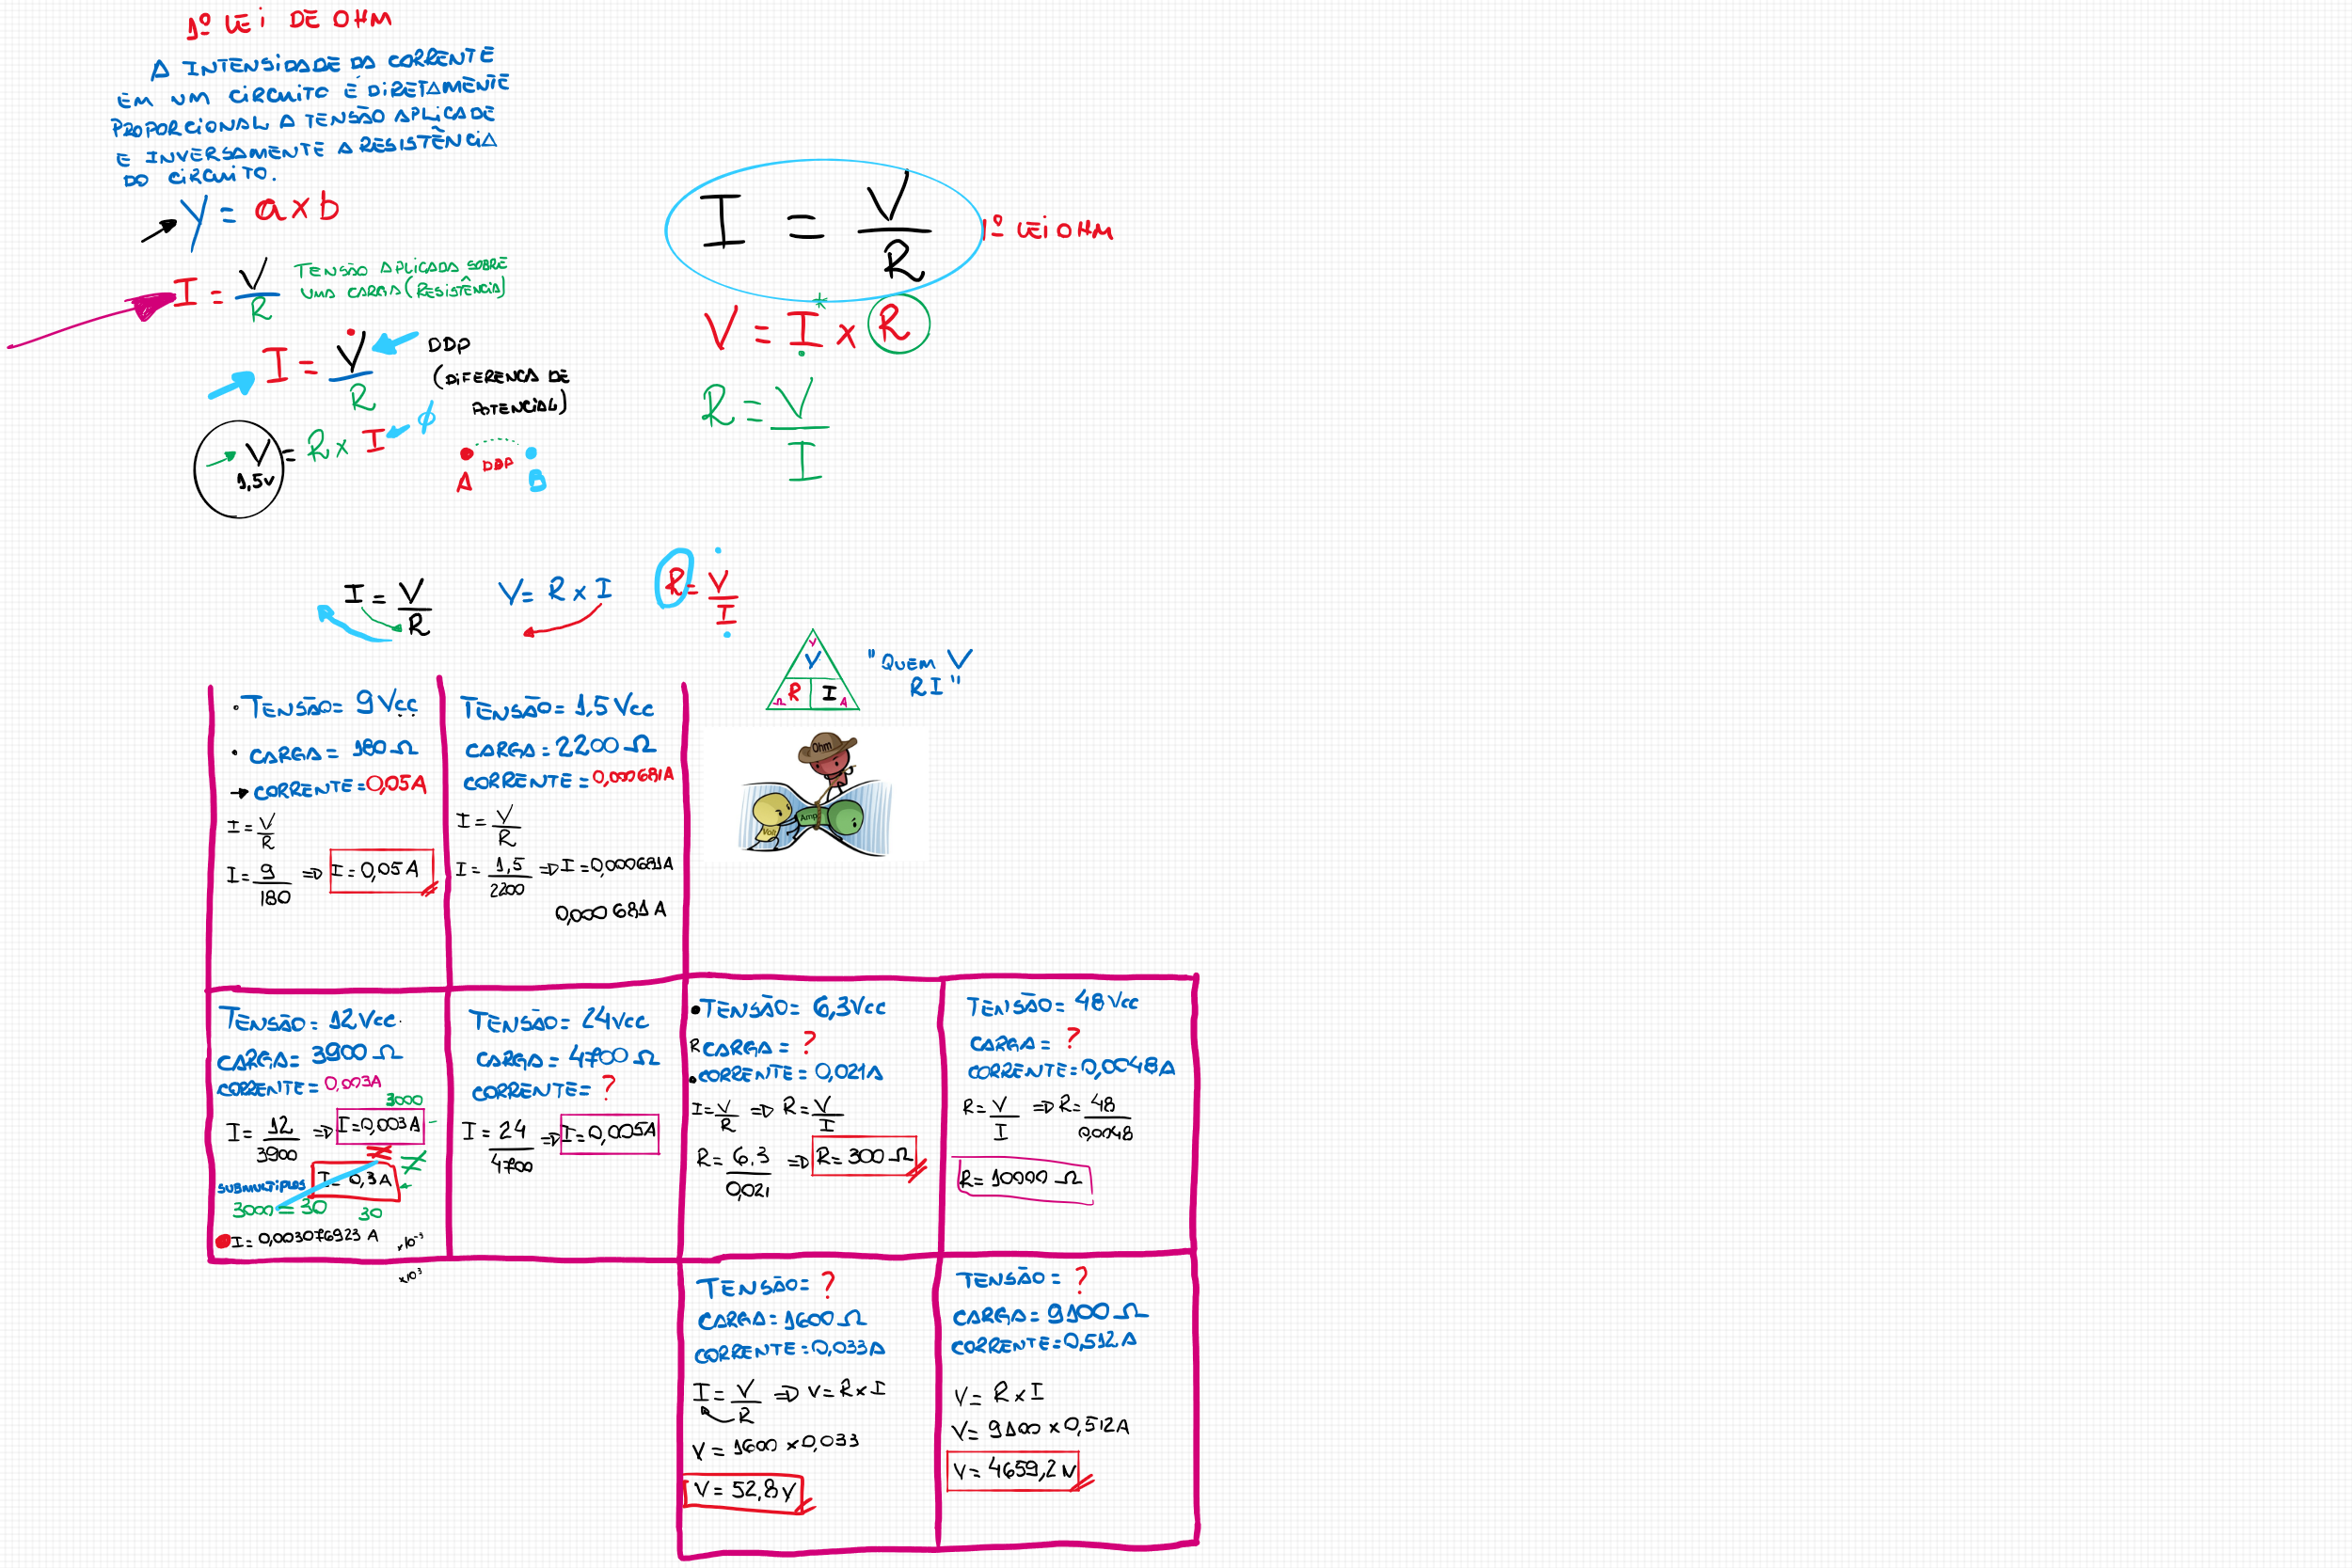 1º LEI DE OHM
A INTENSIDADE DA CORRENTE
EM UM CIRCUITO É DIRETAMENTE
PROPORCIONAL A TENSÃO APLICADE
E INVERSAMENTE A RESISTÊNCIA
DO CIRCUITO.
Y = a x b
I = V/R TENSÃO APLICADA SOBRE
UMA CARGA (RESISTÊNCIA)
I = V/R DDP
(DIFERENCA DE
POTENCIAL)
V = R x I ϕ
1,5V
DDP
A B
I = V/R 1º LEI OHM
V = I x R
R = V/I
I = V/R V = R x I R = V/I
V
V
R I
Ω A
"QUEM V
RI"
Ohm
Volt Amp
TENSÃO = 9 Vcc
CARGA = 180 Ω
CORRENTE = 0,05A
I = V/R
I = 9/180 => I = 0,05 A
TENSÃO = 1,5 Vcc
CARGA = 2200 Ω
CORRENTE = 0,000681A
I = V/R
I = 1,5/2200 => I = 0,000681A
0,000681 A
TENSÃO = 12 Vcc
CARGA = 3900 Ω
CORRENTE = 0,003A
3000
I = 12/3900 => I = 0,003 A
I = 0,3 A
SUBMULTIPLOS
3000 = 30 30
I = 0,003076923 A x10⁻³
x10³
TENSÃO = 24 Vcc
CARGA = 4700 Ω
CORRENTE = ?
I = 24/4700 => I = 0,005A
TENSÃO = 6,3 Vcc
R CARGA = ?
CORRENTE = 0,021A
I = V/R => R = V/I
R = 6,3/0,021 => R = 300 Ω
TENSÃO = 48 Vcc
CARGA = ?
CORRENTE = 0,0048A
R = V/I => R = 48/0,0048
R = 10000 Ω
TENSÃO = ?
CARGA = 1600 Ω
CORRENTE = 0,033A
I = V/R => V = R x I
V = 1600 x 0,033
V = 52,8 V
TENSÃO = ?
CARGA = 9100 Ω
CORRENTE = 0,512A
V = R x I
V = 9100 x 0,512A
V = 4659,2 V